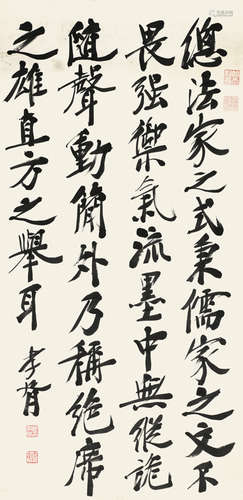 總法家之式秉儒家之文不
畏强禦氣流墨中無縱詭
隨聲動簡外乃稱絕席
之雄直方之舉耳 李